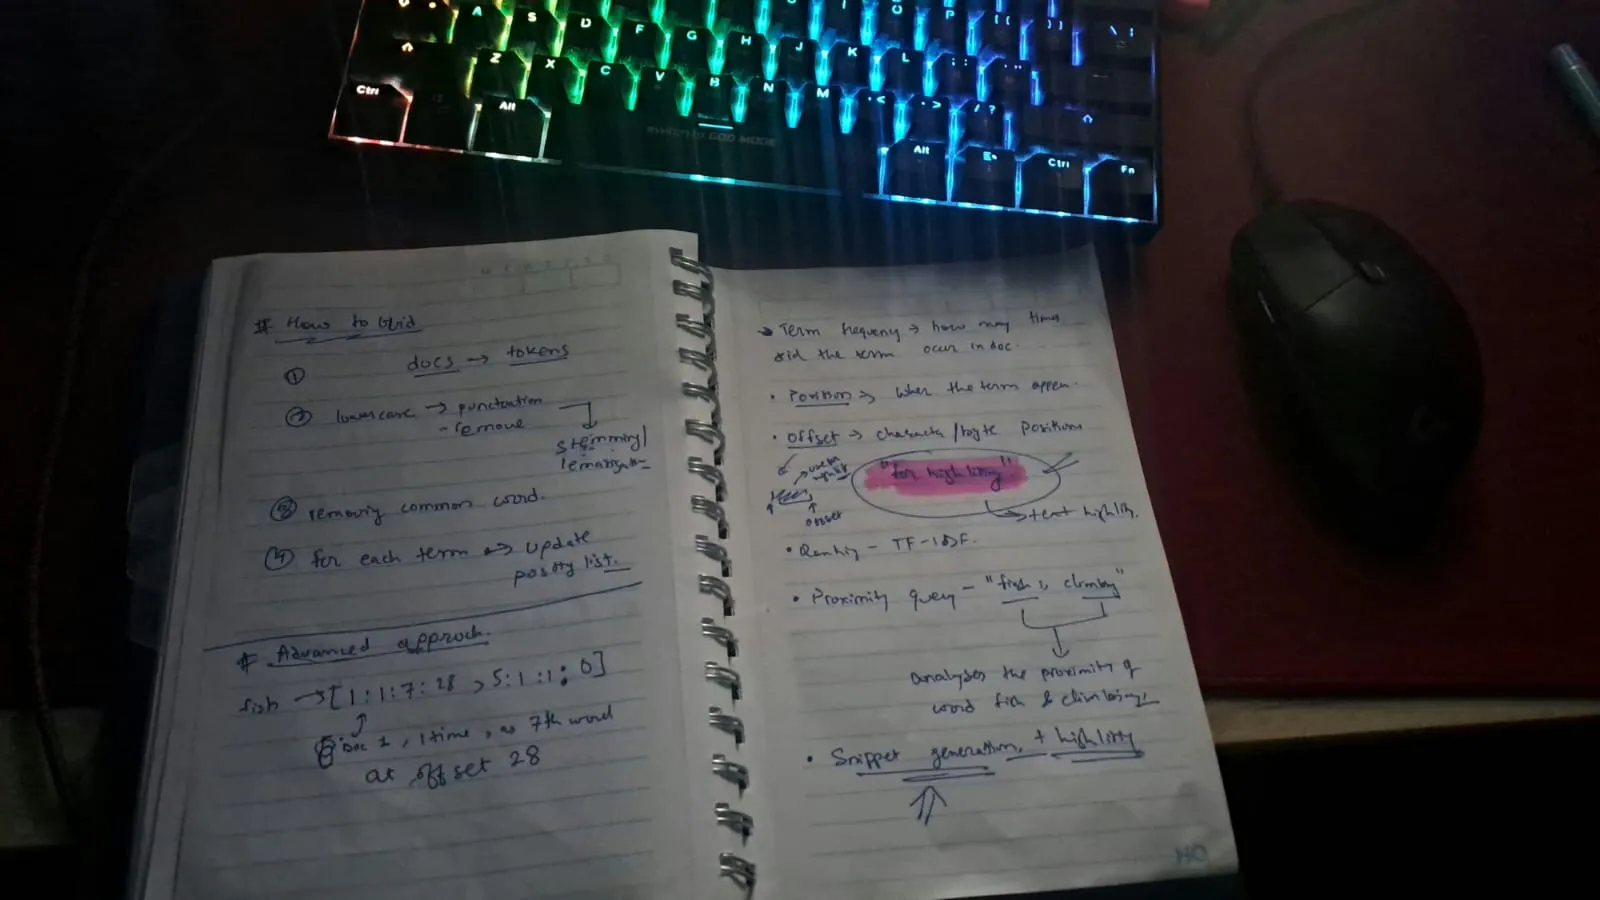 A S D F G H J K L ; :
Z X C V B N M
Ctrl Alt Alt Ctrl Fn
switch to GOD MODE
# How to buid
① docs → tokens
② lowercase → punctuation
- remove
stemming/
③ removing common word.
④ for each term → update
postty list.
# Advanced approch.
fish → [1:1:7:28, 5:1:1:0]
Doc 1, 1 time, as 7th word
at offset 28
→ Term frequeny → how may times
did the term occur in doc.
• Position → When the term appear.
• offset → character/byte positions
"for highliting"
→ text highlity.
offset
• Rankig - TF-IDF.
• Proximity query - "fish, climbing"
analyses the proximity of
word fish & climbing
• Snippet generation, + highlitty